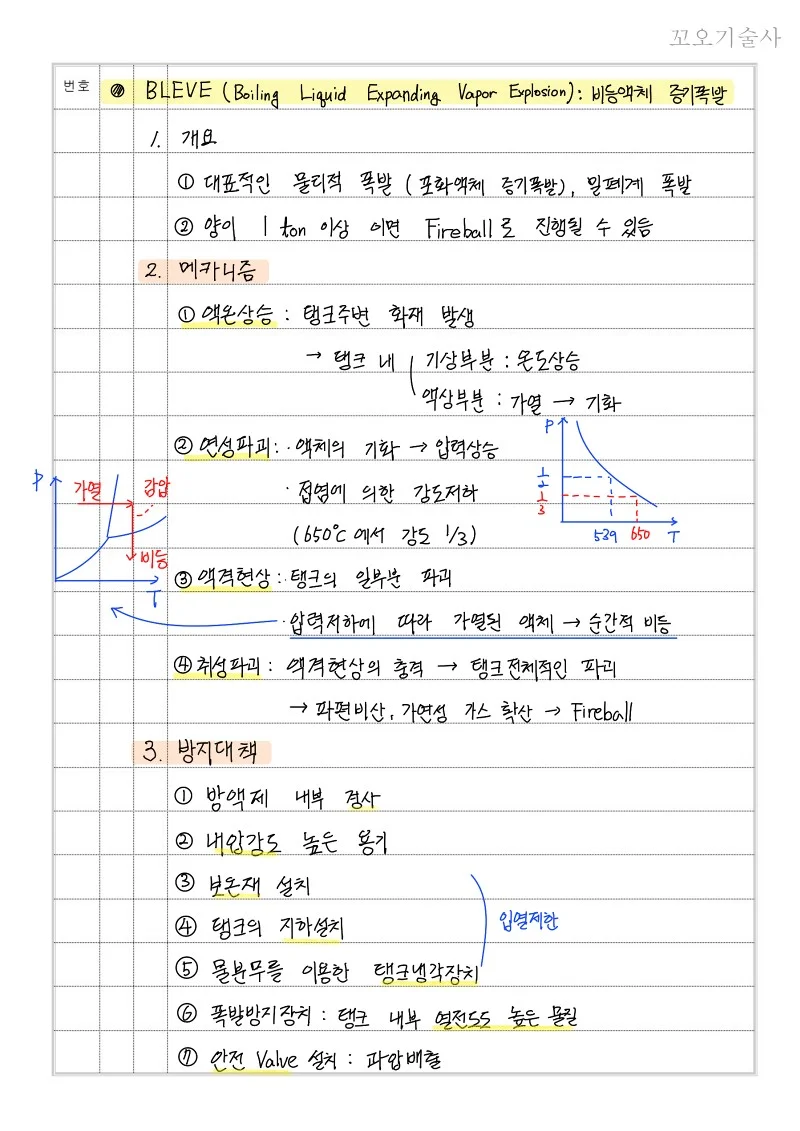 꼬오기술사
번호 BLEVE (Boiling Liquid Expanding Vapor Explosion) : 비등액체 증기폭발
1. 개요
① 대표적인 물리적 폭발 (포화액체 증기폭발), 밀폐계 폭발
② 양이 1 ton 이상 이면 Fireball로 진행될 수 있음
2. 메카니즘
① 액온상승 : 탱크주변 화재 발생
→ 탱크 내 기상부분 : 온도상승
액상부분 : 가열 → 기화
② 연성파괴 : · 액체의 기화 → 압력상승
· 접염에 의한 강도저하
(650℃에서 강도 1/3)
P
1/2
1/3
539 650 T
P
가열 감압
비등
T
③ 액격현상 : · 탱크의 일부분 파괴
· 압력저하에 따라 가열된 액체 → 순간적 비등
④ 취성파괴 : 액격현상의 충격 → 탱크전체적인 파괴
→ 파편비산, 가연성 가스 확산 → Fireball
3. 방지대책
① 방액제 내부 경사
② 내압강도 높은 용기
③ 보온재 설치
④ 탱크의 지하설치
입열제한
⑤ 물분무를 이용한 탱크냉각장치
⑥ 폭발방지장치 : 탱크 내부 열전도도 높은 물질
⑦ 안전 Valve 설치 : 과압배출